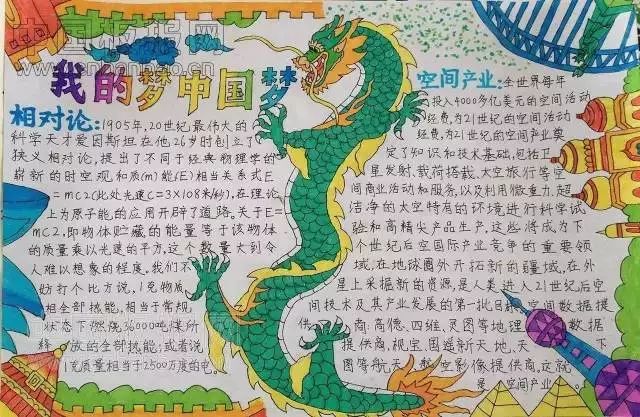 我的梦中国梦
相对论:1905年,20世纪最伟大的
科学天才爱因斯坦在他26岁时创立了
狭义相对论,提出了不同于经典物理学的
崭新的时空观和质(m)能(E)相当关系式E
=mc2(此处光速C=3X108米/秒),在理论
上为原子能的应用开辟了道路。关于E=
mC2,即物体贮藏的能量等于该物体
的质量乘以光速的平方,这个数量大到令
人难以想象的程度。我们不
妨打个比方说,1克物质
相全部热能,相当于常规
状态下燃烧36000吨煤所
放的全部热能;或者说
1克质量相当于2500万度的电
空间产业:全世界每年
投入4000多亿美元的空间活动
经费,为21世纪的空间活动
经费,为21世纪的空间产业奠
定了知识和技术基础,包括卫
星发射、载荷搭载、太空旅行等空
间商业活动和服务,以及利用微重力、超
洁净的太空特有的环境进行科学试
验和高精尖产品生产,这些将成为下
个世纪后空国际产业竞争的重要领
域,在地球圈外开拓新的疆域,在外
星上采掘新的资源,是人类进入21世纪后空
间技术及其产业发展的第一批目标,空间数据提
供商:高德、四维、灵图等地理数据
提供商,视宝、国遥新天地、天下
图等航天、航空影像提供商,这就
是空间产业